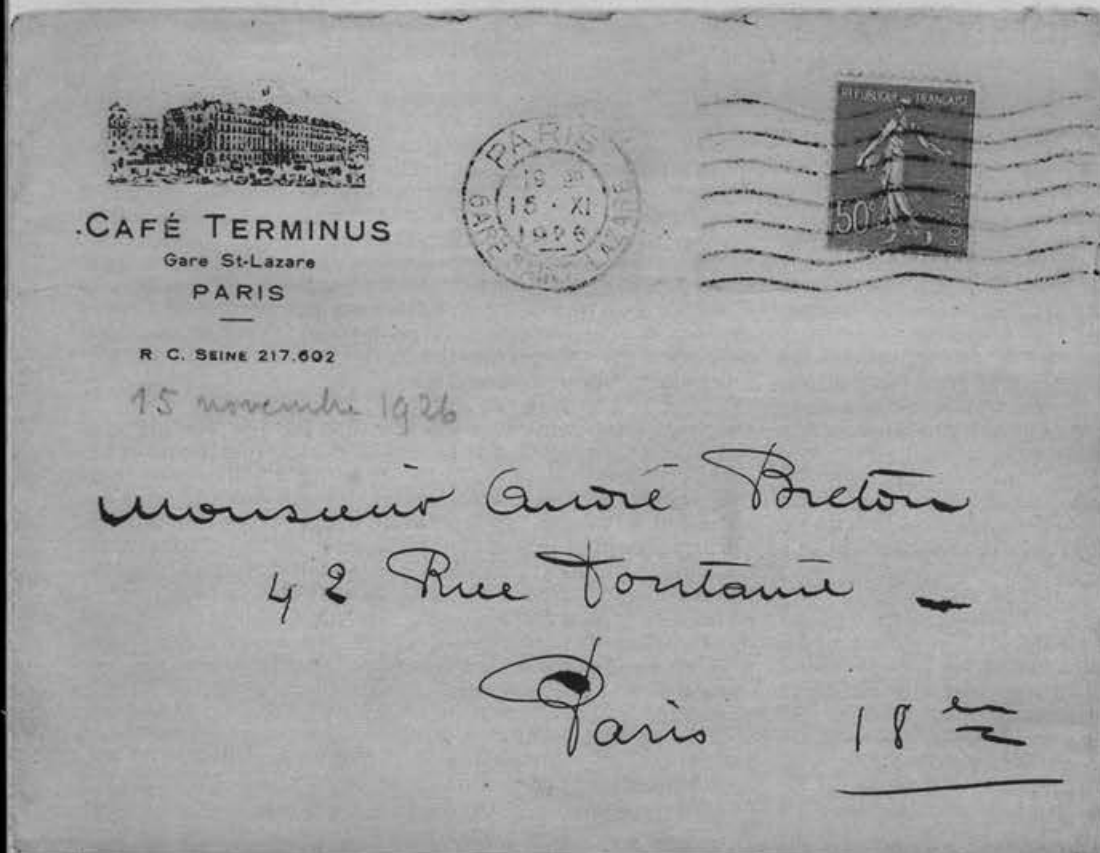 CAFÉ TERMINUS
Gare St-Lazare
PARIS
R. C. SEINE 217.602
PARIS
19 30
15 · XI
1926
GARE SAINT-LAZARE
REPUBLIQUE FRANÇAISE
50c
15 novembre 1926
Monsieur André Breton
42 Rue Fontaine
Paris 18 em